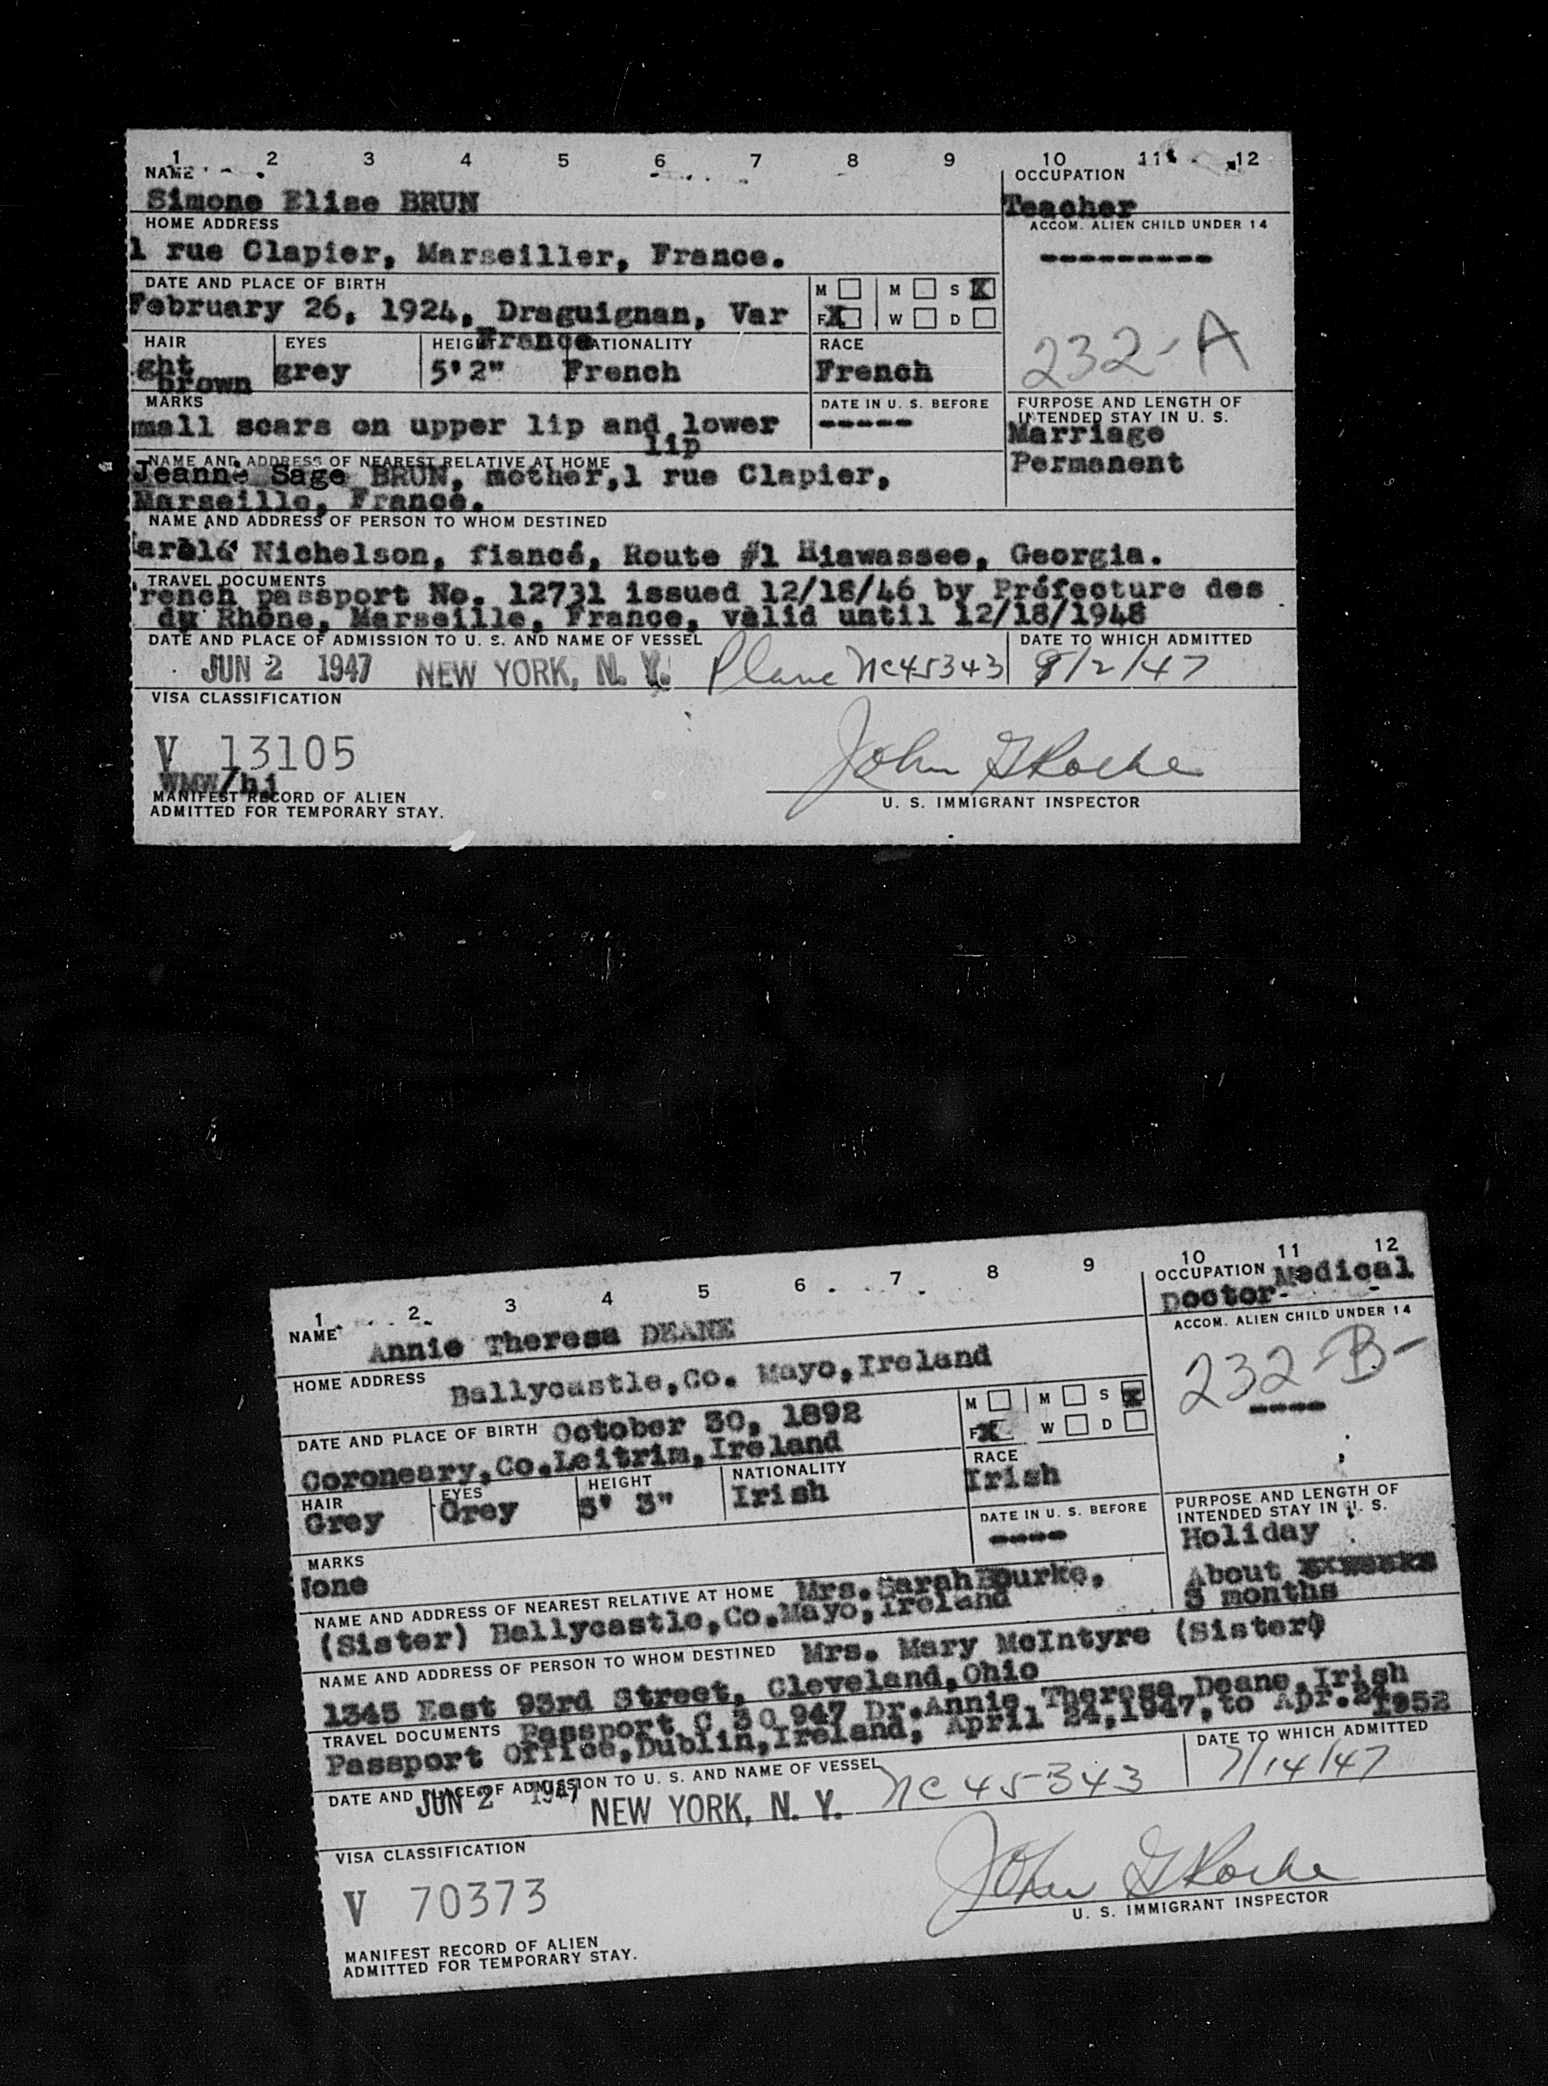 1 2 3 4 5 6 7 8 9 10 11 12
NAME
Simone Elise BRUN
OCCUPATION
Teacher
HOME ADDRESS
1 rue Clapier, Marseiller, France.
ACCOM. ALIEN CHILD UNDER 14
---------
DATE AND PLACE OF BIRTH
February 26, 1924, Draguignan, Var
France
M M S X
F X W D
232-A
HAIR EYES HEIGHT NATIONALITY RACE
ght brown grey 5'2" French French
MARKS
mall scars on upper lip and lower
lip
DATE IN U. S. BEFORE
-----
PURPOSE AND LENGTH OF
INTENDED STAY IN U. S.
Marriage
Permanent
NAME AND ADDRESS OF NEAREST RELATIVE AT HOME
Jeanne Sage BRUN, mother,1 rue Clapier,
Marseille, France.
NAME AND ADDRESS OF PERSON TO WHOM DESTINED
Nichelson, fiancé, Route #1 Hiawassee, Georgia.
TRAVEL DOCUMENTS
rench passport No. 12731 issued 12/18/46 by Préfecture des
du Rhône, Marseille, France, valid until 12/18/1948
DATE AND PLACE OF ADMISSION TO U. S. AND NAME OF VESSEL
JUN 2 1947 NEW YORK, N. Y. Plane NC45343
DATE TO WHICH ADMITTED
8/2/47
VISA CLASSIFICATION
V 13105
WMW/hj
John G Roche
MANIFEST RECORD OF ALIEN
ADMITTED FOR TEMPORARY STAY.
U. S. IMMIGRANT INSPECTOR
1 2 3 4 5 6 7 8 9 10 11 12
NAME
Annie Theresa DEANE
OCCUPATION Medical
Doctor-
HOME ADDRESS
Ballycastle,Co. Mayo,Ireland
ACCOM. ALIEN CHILD UNDER 14
232-B-
----
DATE AND PLACE OF BIRTH October 30, 1892
Coroneary,Co.Leitrim,Ireland
M M S X
F X W D
HAIR EYES HEIGHT NATIONALITY RACE
Grey Grey 5' 3" Irish Irish
MARKS
None
DATE IN U. S. BEFORE
----
PURPOSE AND LENGTH OF
INTENDED STAY IN U. S.
Holiday
About
3 months
NAME AND ADDRESS OF NEAREST RELATIVE AT HOME Mrs.Sarah Bourke,
(Sister) Ballycastle,Co.Mayo,Ireland
NAME AND ADDRESS OF PERSON TO WHOM DESTINED Mrs. Mary McIntyre (Sister)
1345 East 93rd Street, Cleveland,Ohio
TRAVEL DOCUMENTS Passport C 30 947 Dr.Annie Theresa Deane,Irish
Passport Office,Dublin,Ireland, April 24,1947,to Apr.24
1952
DATE AND PLACE OF ADMISSION TO U. S. AND NAME OF VESSEL
JUN 2 1947 NEW YORK, N. Y. NC 45343
DATE TO WHICH ADMITTED
7/14/47
VISA CLASSIFICATION
V 70373
John G Roche
U. S. IMMIGRANT INSPECTOR
MANIFEST RECORD OF ALIEN
ADMITTED FOR TEMPORARY STAY.